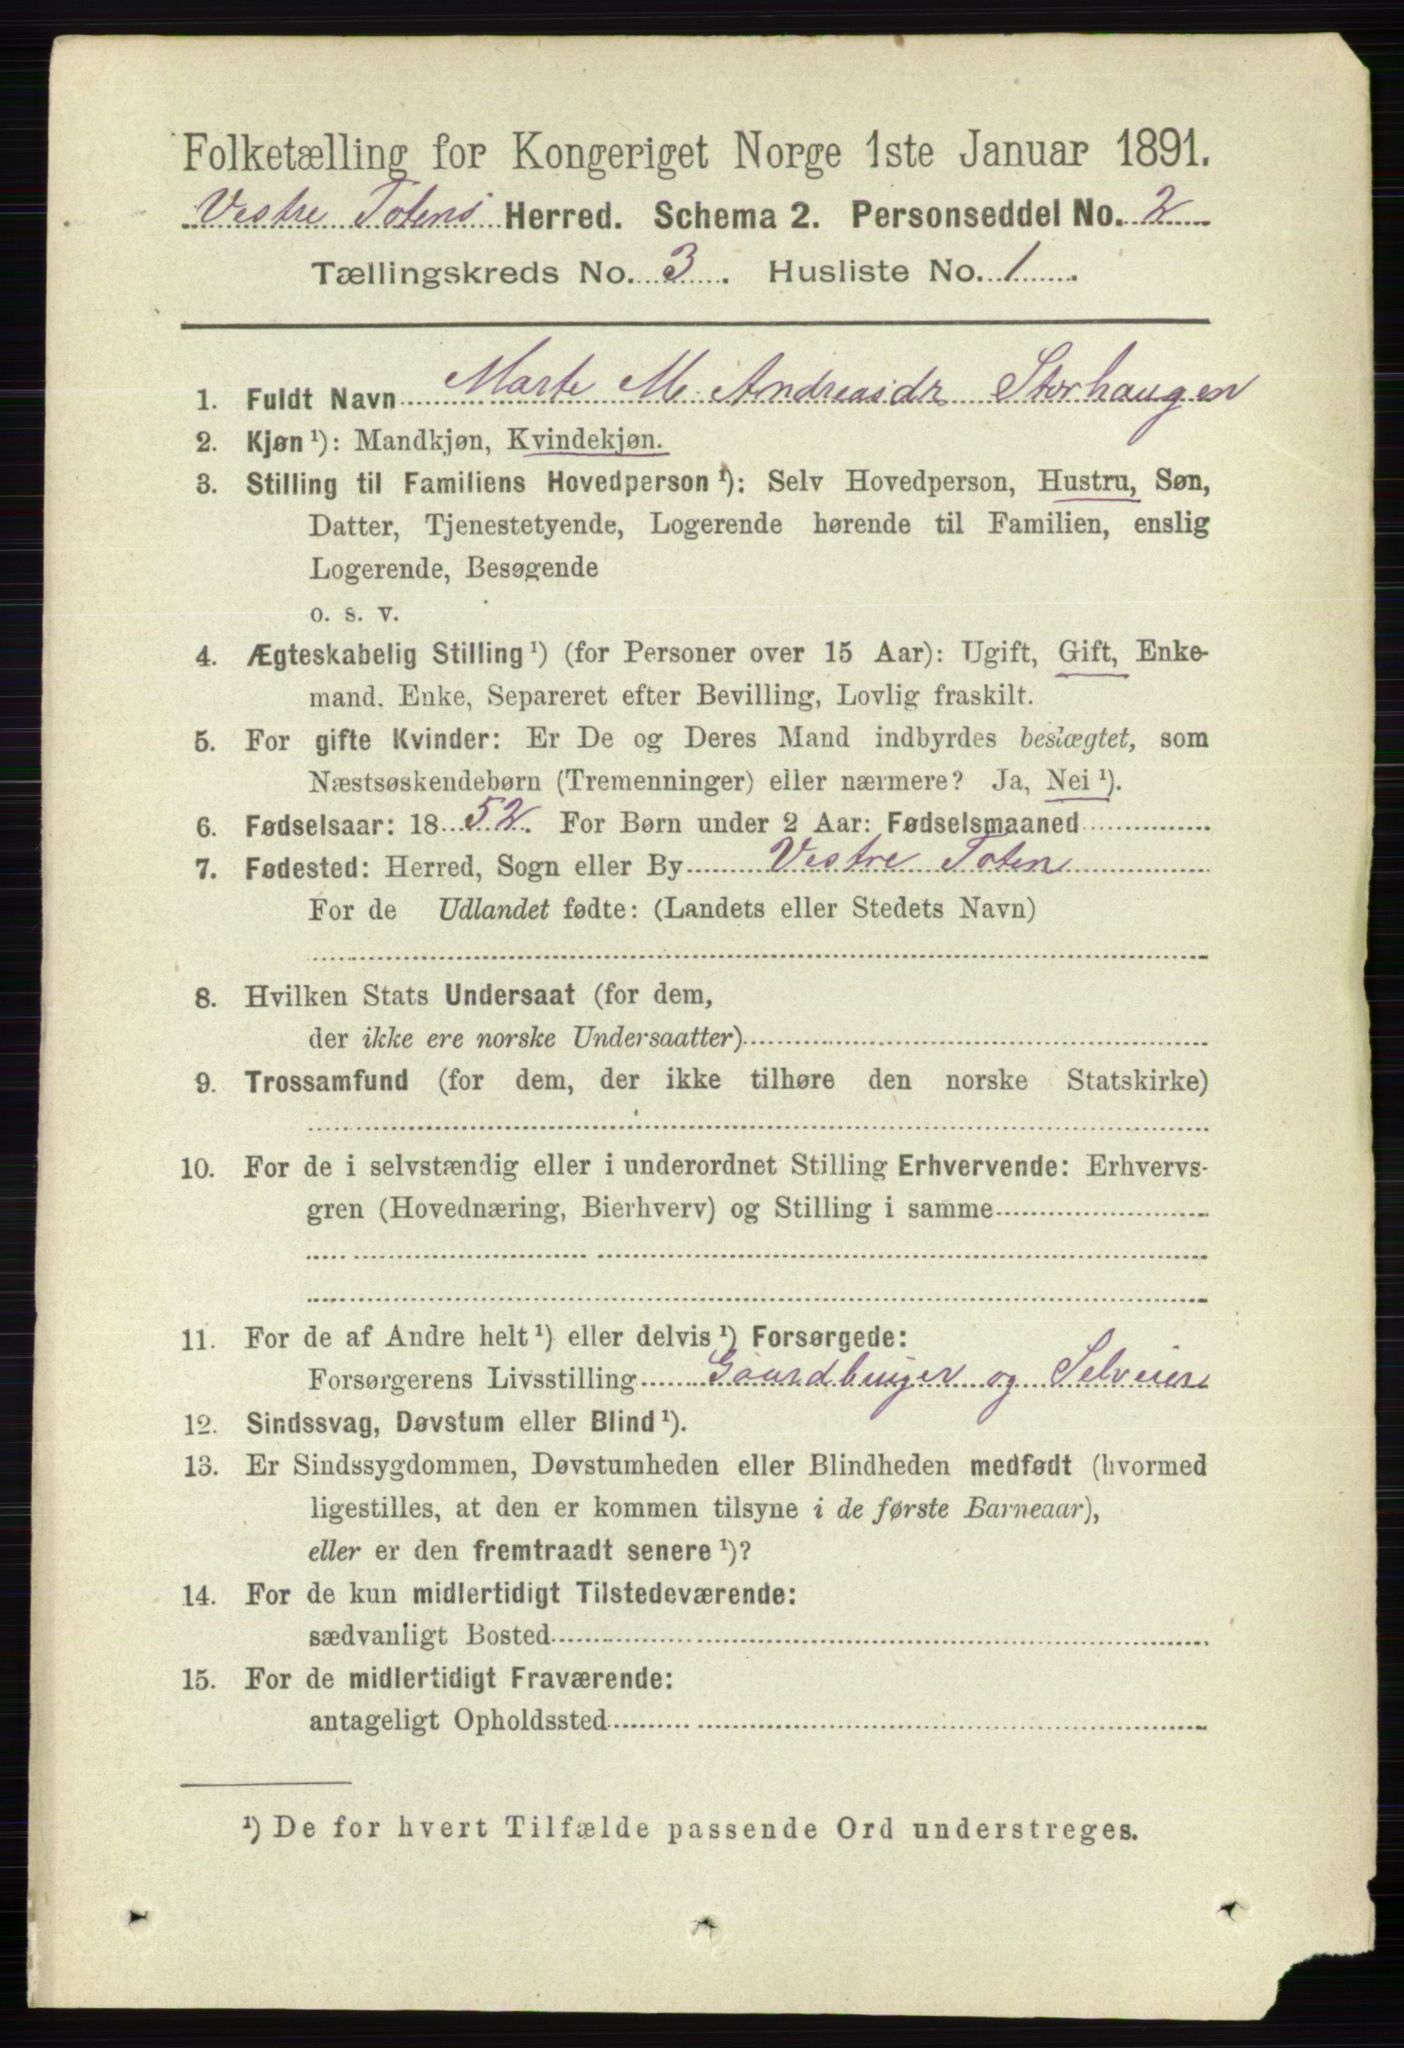 Folketælling for Kongeriget Norge 1ste Januar 1891.
Vestre Totens Herred. Schema 2. Personseddel No. 2
Tællingskreds No. 3. Husliste No. 1.
1. Fuldt Navn Marte M. Andreasdr Storhaugen
2. Kjøn ¹): Mandkjøn, Kvindekjøn.
3. Stilling til Familiens Hovedperson ¹): Selv Hovedperson, Hustru, Søn,
Datter, Tjenestetyende, Logerende hørende til Familien, enslig
Logerende, Besøgende
o. s. v.
4. Ægteskabelig Stilling ¹) (for Personer over 15 Aar): Ugift, Gift, Enke-
mand. Enke, Separeret efter Bevilling, Lovlig fraskilt.
5. For gifte Kvinder: Er De og Deres Mand indbyrdes beslægtet, som
Næstsøskendebørn (Tremenninger) eller nærmere? Ja, Nei ¹).
6. Fødselsaar: 1852. For Børn under 2 Aar: Fødselsmaaned
7. Fødested: Herred, Sogn eller By Vestre Toten
For de Udlandet fødte: (Landets eller Stedets Navn)
8. Hvilken Stats Undersaat (for dem,
der ikke ere norske Undersaatter)
9. Trossamfund (for dem, der ikke tilhøre den norske Statskirke)
10. For de i selvstændig eller i underordnet Stilling Erhvervende: Erhvervs-
gren (Hovednæring, Bierhverv) og Stilling i samme
11. For de af Andre helt ¹) eller delvis ¹) Forsørgede:
Forsørgerens Livsstilling Gaardbruger og Selveier
12. Sindssvag, Døvstum eller Blind ¹).
13. Er Sindssygdommen, Døvstumheden eller Blindheden medfødt (hvormed
ligestilles, at den er kommen tilsyne i de første Barneaar),
eller er den fremtraadt senere ¹)?
14. For de kun midlertidigt Tilstedeværende:
sædvanligt Bosted
15. For de midlertidigt Fraværende:
antageligt Opholdssted
¹) De for hvert Tilfælde passende Ord understreges.